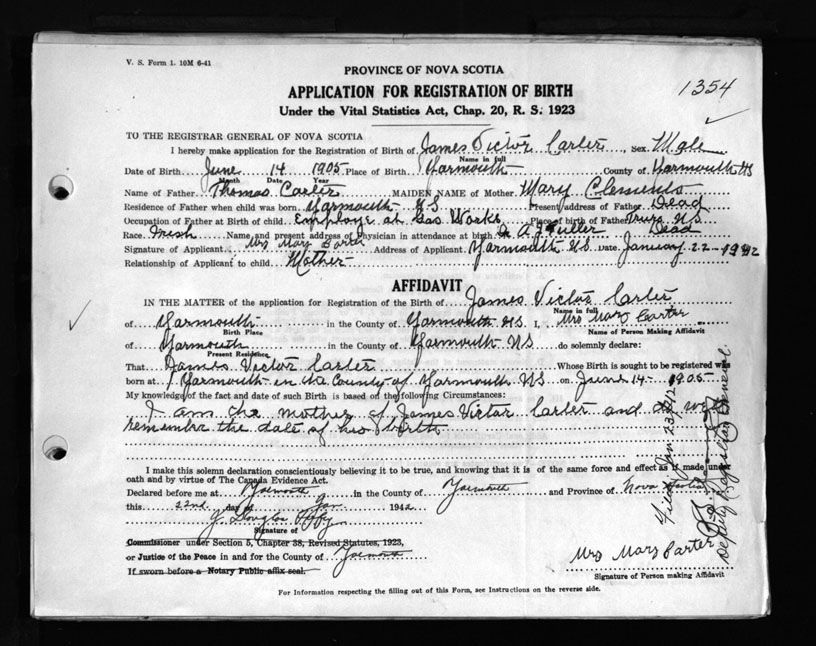 V. S. Form 1. 10M 6-41
PROVINCE OF NOVA SCOTIA
APPLICATION FOR REGISTRATION OF BIRTH
1354
Under the Vital Statistics Act, Chap. 20, R. S. 1923
TO THE REGISTRAR GENERAL OF NOVA SCOTIA
I hereby make application for the Registration of Birth of James Victor Carter, Sex Male
Name in full
Date of Birth June 14 1905 Place of Birth Yarmouth County of Yarmouth NS
Month Date Year
Name of Father Thomas Carter MAIDEN NAME of Mother Mary Clements
Residence of Father when child was born Yarmouth N.S Present address of Father Dead
Occupation of Father at Birth of child Employe at Gas Works Place of birth of Father Truro N.S
Race Irish Name and present address of Physician in attendance at birth A J Fuller Dead
Signature of Applicant Mrs Mary Carter Address of Applicant Yarmouth N.S. Date January 22 1942
Relationship of Applicant to child Mother
AFFIDAVIT
IN THE MATTER of the application for Registration of the Birth of James Victor Carter
Name in full
of Yarmouth in the County of Yarmouth N.S. I, Mrs Mary Carter
Birth Place Name of Person Making Affidavit
of Yarmouth in the County of Yarmouth NS do solemnly declare:
Present Residence
That James Victor Carter Whose Birth is sought to be registered was
born at Yarmouth in the County of Yarmouth NS on June 14 1905
My knowledge of the fact and date of such Birth is based on the following Circumstances:
I am the mother of James Victor Carter and do well
remember the date of his birth
I make this solemn declaration conscientiously believing it to be true, and knowing that it is of the same force and effect as if made under
oath and by virtue of The Canada Evidence Act.
Declared before me at Yarmouth in the County of Yarmouth and Province of Nova Scotia
this 22nd day of Jan 1942
J. Douglas
Signature of
Commissioner under Section 5, Chapter 38, Revised Statutes, 1923,
or Justice of the Peace in and for the County of Yarmouth
If sworn before a Notary Public affix seal.
Mrs Mary Carter
Signature of Person making Affidavit
For Information respecting the filling out of this Form, see Instructions on the reverse side.
Filed Jan 23
Deputy Registrar General.